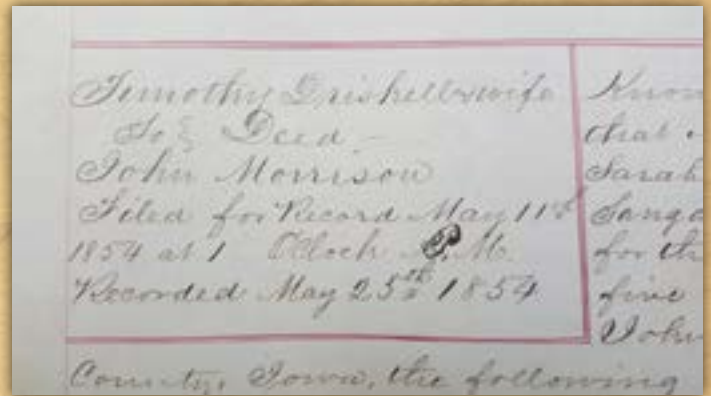 Timothy Driskell & wife
To } Deed -
John Morrison
Filed for Record May 11th
1854 at 1 O'Clock P.M.
Recorded May 25th 1854
Know
that
Sarah
Sanga
for th
five
John
County, Iowa, the following